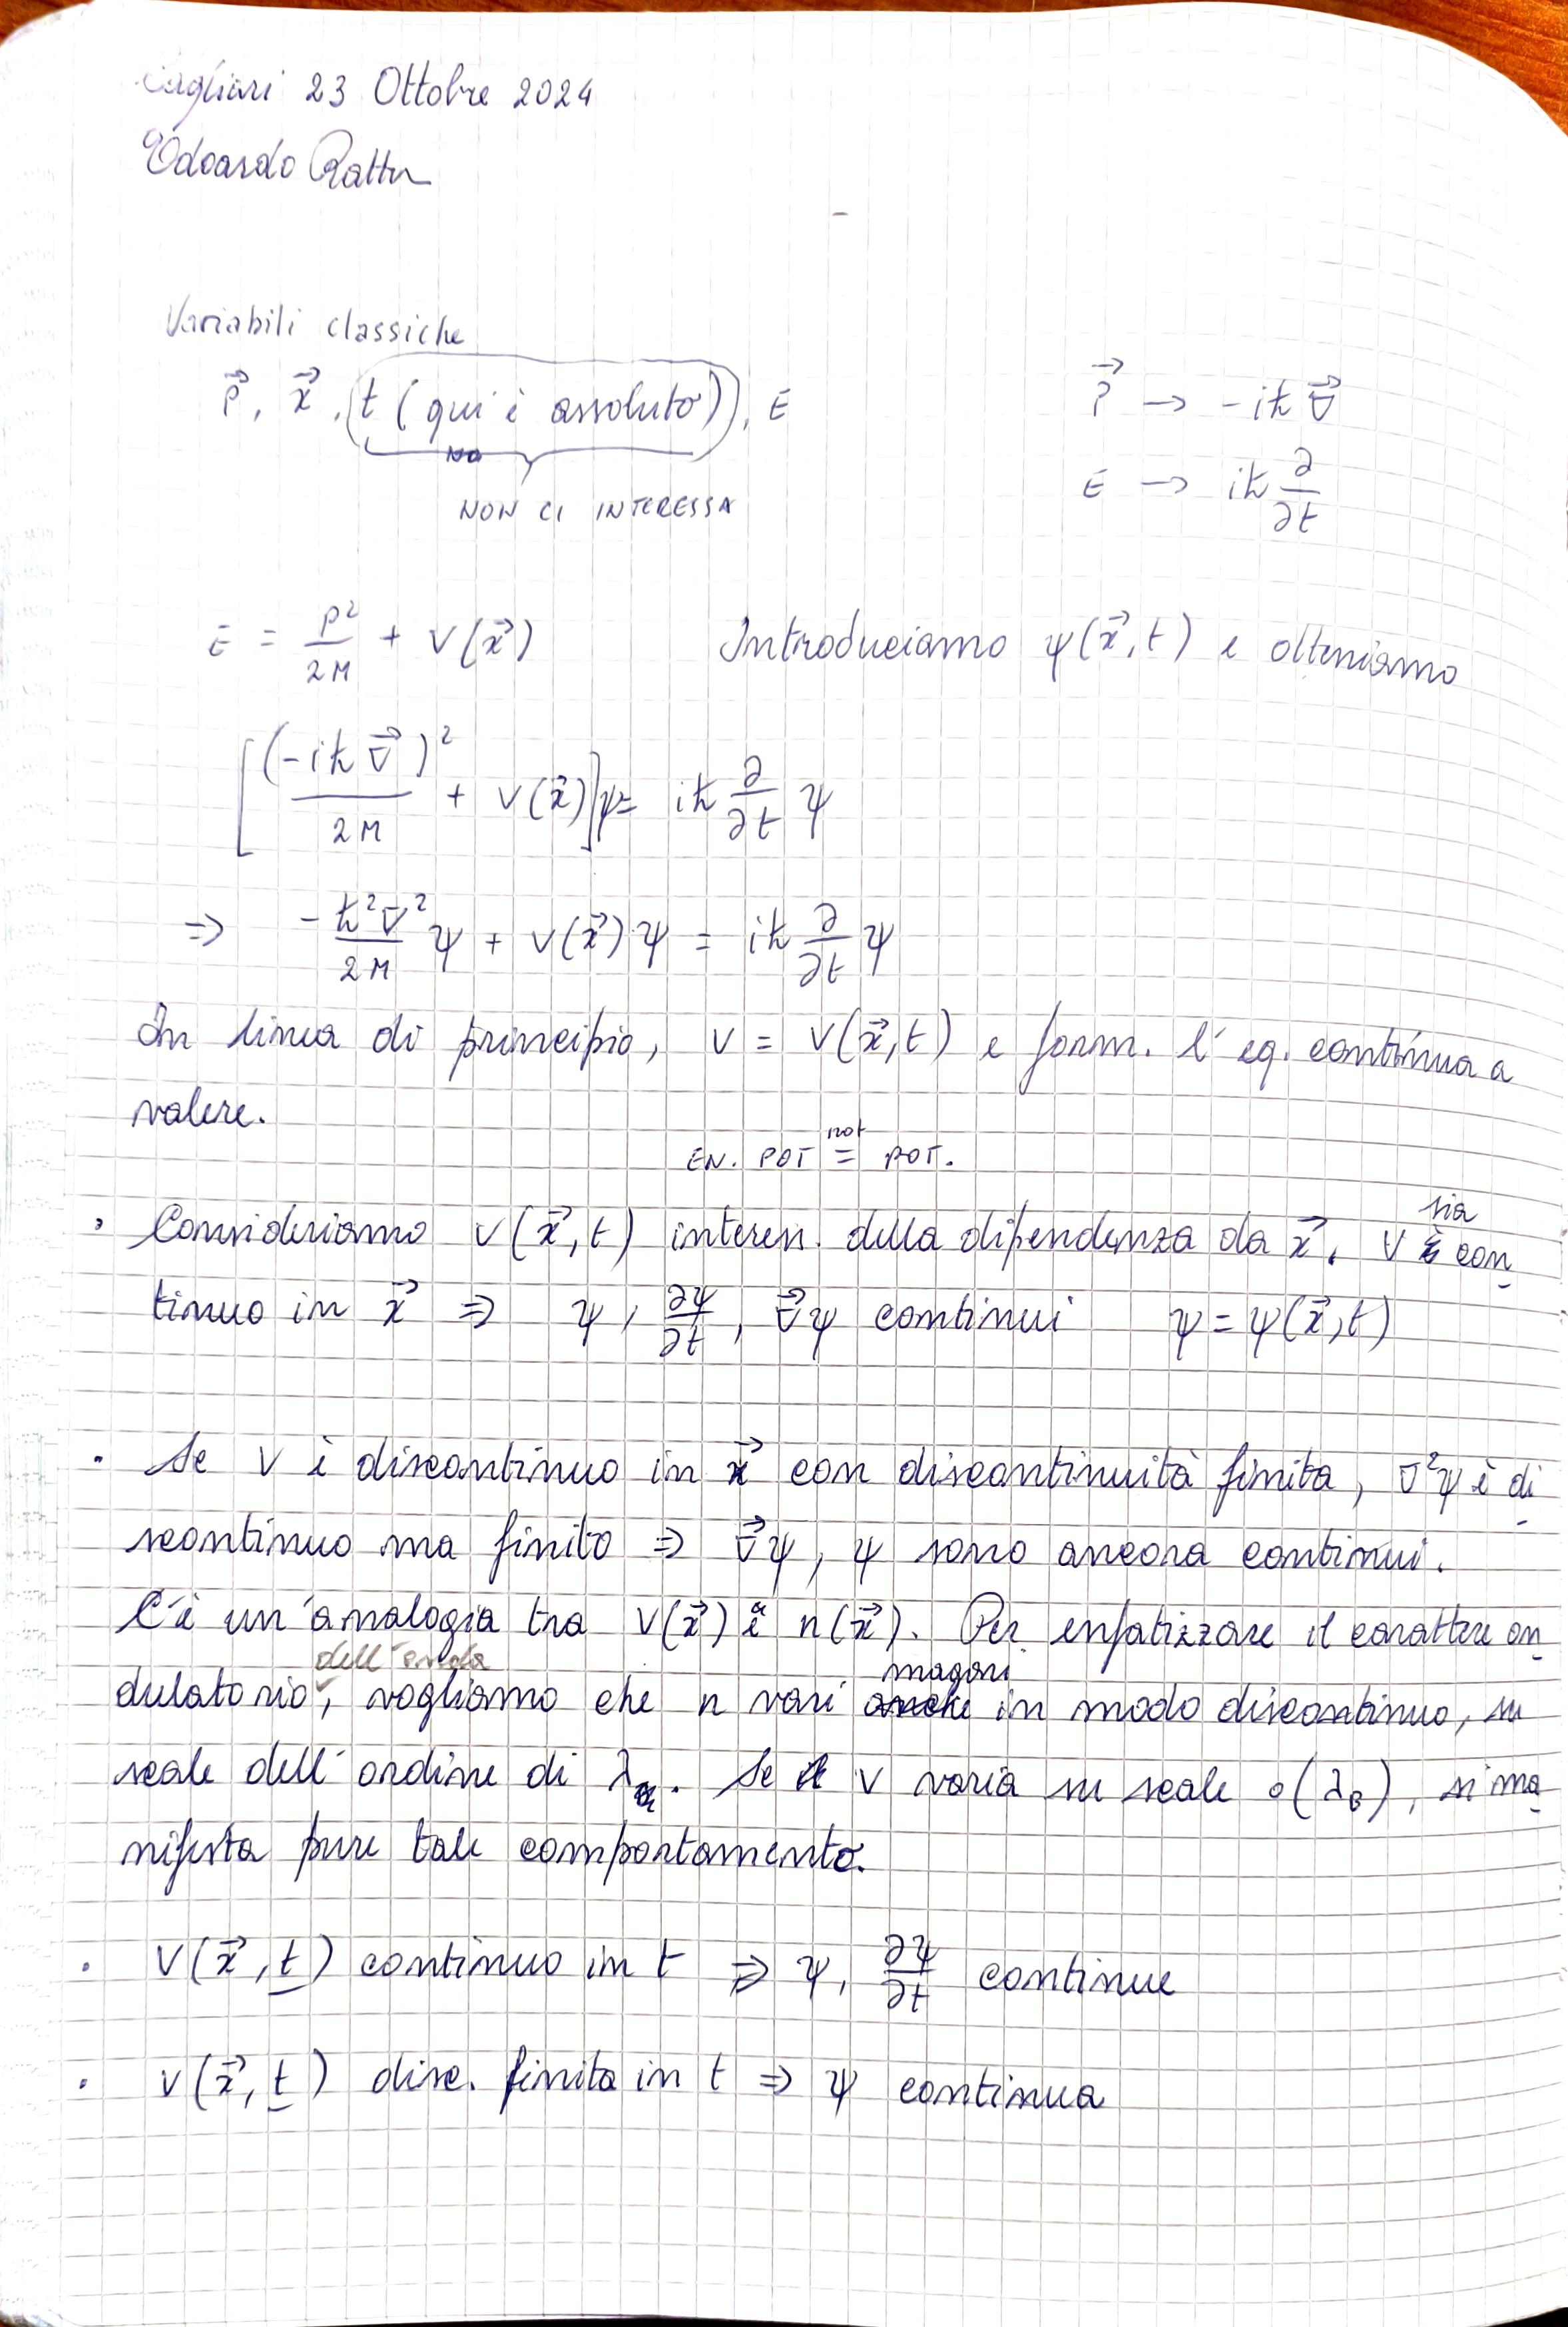 Cagliari 23 Ottobre 2024
Edoardo Rattu
Variabili classiche
p⃗, x⃗, t (qui è assoluto), E
NON CI INTERESSA
p⃗ → -iħ∇⃗
E → iħ ∂/∂t
E = p²/2M + V(x⃗)    Introduciamo ψ(x⃗,t) e otteniamo
[(-iħ∇⃗)²/2M + V(x⃗)]ψ = iħ ∂/∂t ψ
⇒ -ħ²∇²/2M ψ + V(x⃗)ψ = iħ ∂/∂t ψ
In linea di principio, V = V(x⃗,t) e form. l'eq. continua a
valere.
EN. POT not= POT.
• Consideriamo V(x⃗,t) interess. della dipendenza da x⃗. V sia con
tinuo in x⃗ ⇒ ψ, ∂ψ/∂t, ∇⃗ψ continui    ψ = ψ(x⃗,t)
• Se V è discontinuo in x⃗ con discontinuità finita, ∇²ψ è di
scontinuo ma finito ⇒ ∇⃗ψ, ψ sono ancora continui.
C'è un'analogia tra V(x⃗) e n(x⃗). Per enfatizzare il carattere on
dulatorio dell'onda, vogliamo che n vari magari in modo discontinuo, su
scale dell'ordine di λ. Se V varia su scale o(λ_B), si ma
nifesta pure tale comportamento.
• V(x⃗,t) continuo in t ⇒ ψ, ∂ψ/∂t continue
• V(x⃗,t) disc. finita in t ⇒ ψ continua